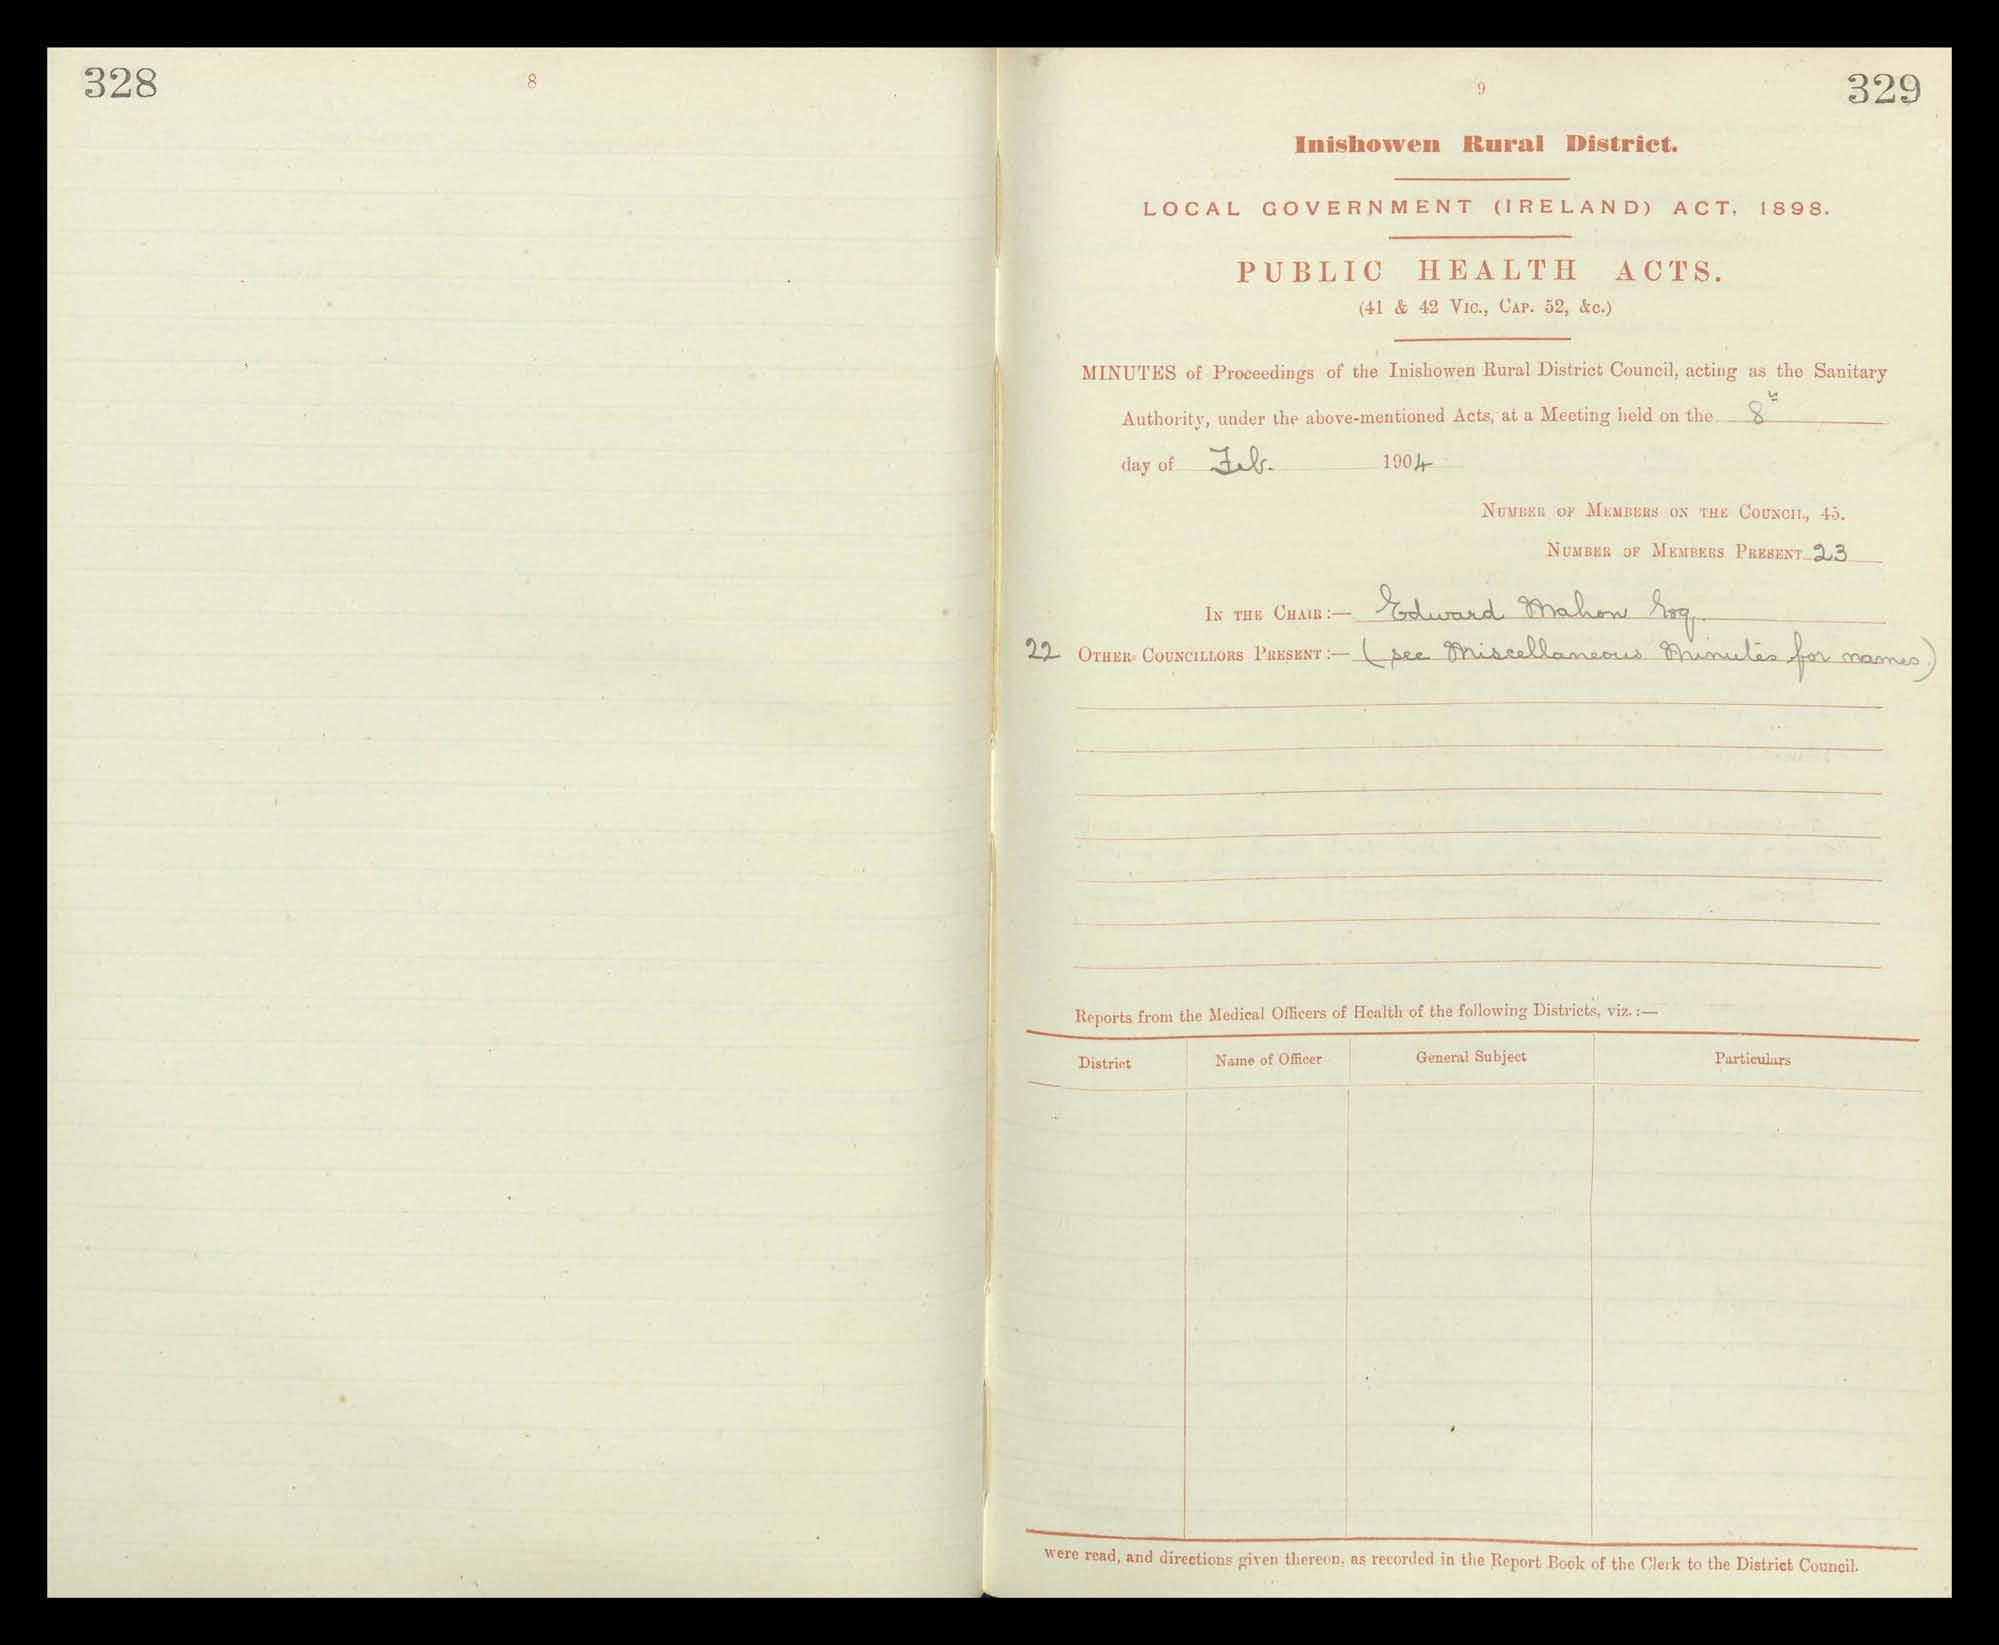 328
8
9
329
Inishowen Rural District.
LOCAL GOVERNMENT (IRELAND) ACT, 1898.
PUBLIC HEALTH ACTS.
(41 & 42 Vic., Cap. 52, &c.)
MINUTES of Proceedings of the Inishowen Rural District Council, acting as the Sanitary
Authority, under the above-mentioned Acts, at a Meeting held on the 8th
day of Feb. 1904
Number of Members on the Council, 45.
Number of Members Present 23
In the Chair:— Edward Mahon Esq.
22 Other Councillors Present:— (see Miscellaneous Minutes for names)
Reports from the Medical Officers of Health of the following Districts, viz.:—
District Name of Officer General Subject Particulars
were read, and directions given thereon, as recorded in the Report Book of the Clerk to the District Council.